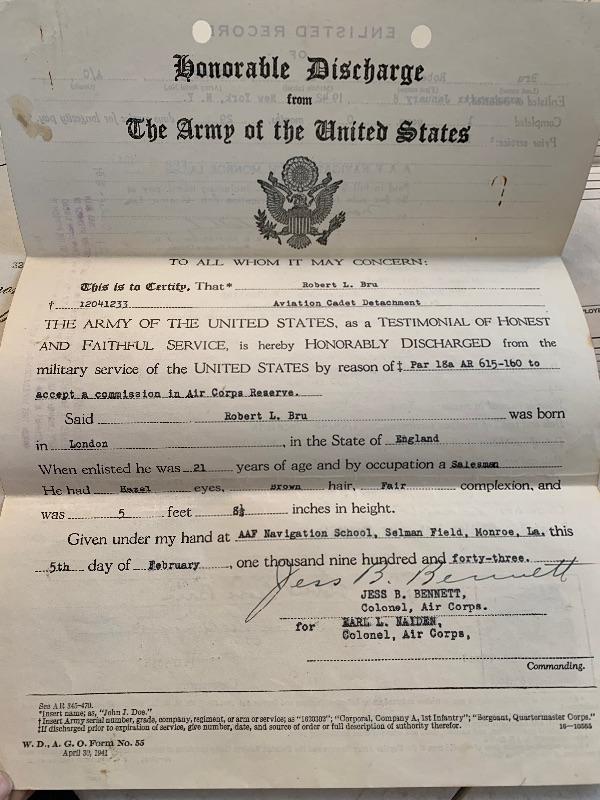 ENLISTED RECORD
OF
Honorable Discharge
from
The Army of the United States
TO ALL WHOM IT MAY CONCERN:
This is to Certify, That* Robert L. Bru
† 12041233 Aviation Cadet Detachment
THE ARMY OF THE UNITED STATES, as a TESTIMONIAL OF HONEST
AND FAITHFUL SERVICE, is hereby HONORABLY DISCHARGED from the
military service of the UNITED STATES by reason of ‡ Par 18a AR 615-160 to
accept a commission in Air Corps Reserve.
Said Robert L. Bru was born
in London, in the State of England
When enlisted he was 21 years of age and by occupation a Salesman
He had Hazel eyes, Brown hair, Fair complexion, and
was 5 feet 8½ inches in height.
Given under my hand at AAF Navigation School, Selman Field, Monroe, La. this
5th day of February, one thousand nine hundred and forty-three.
Jess B. Bennett
JESS B. BENNETT,
Colonel, Air Corps.
for EARL L. NAIDEN,
Colonel, Air Corps,
Commanding.
See AR 345-470.
*Insert name; as, "John J. Doe."
†Insert Army serial number, grade, company, regiment, or arm or service; as "1620302"; "Corporal, Company A, 1st Infantry"; "Sergeant, Quartermaster Corps."
‡If discharged prior to expiration of service, give number, date, and source of order or full description of authority therefor.
W. D., A. G. O. Form No. 55
April 30, 1941